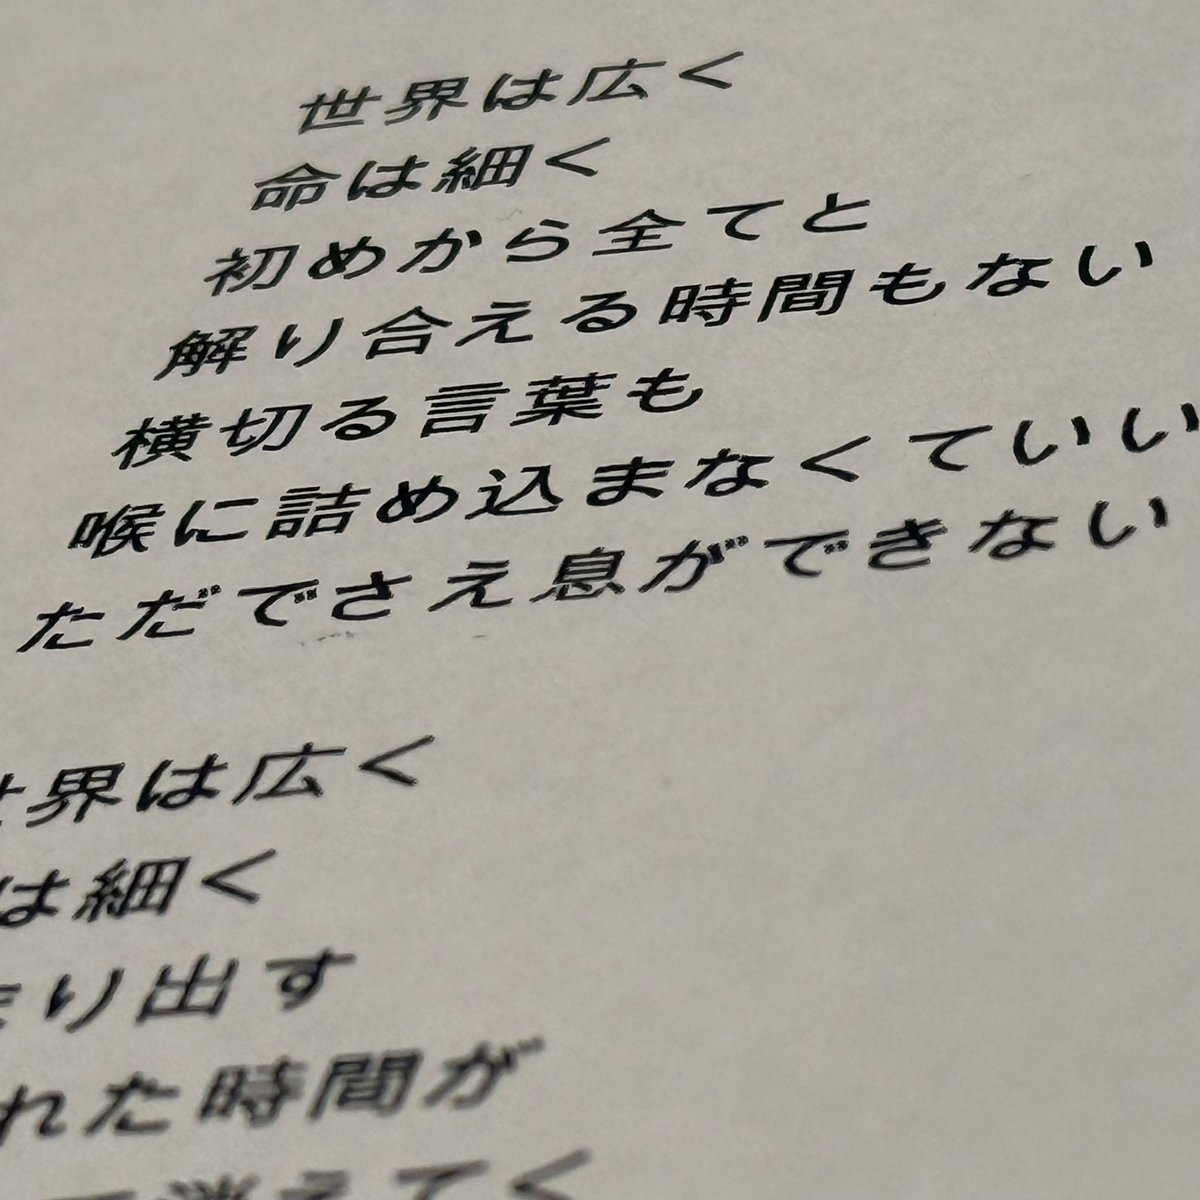 世界は広く
命は細く
初めから全てと
解り合える時間もない
横切る言葉も
喉に詰め込まなくていい
ただでさえ息ができない
世界は広く
は細く
り出す
れた時間が
消えてく